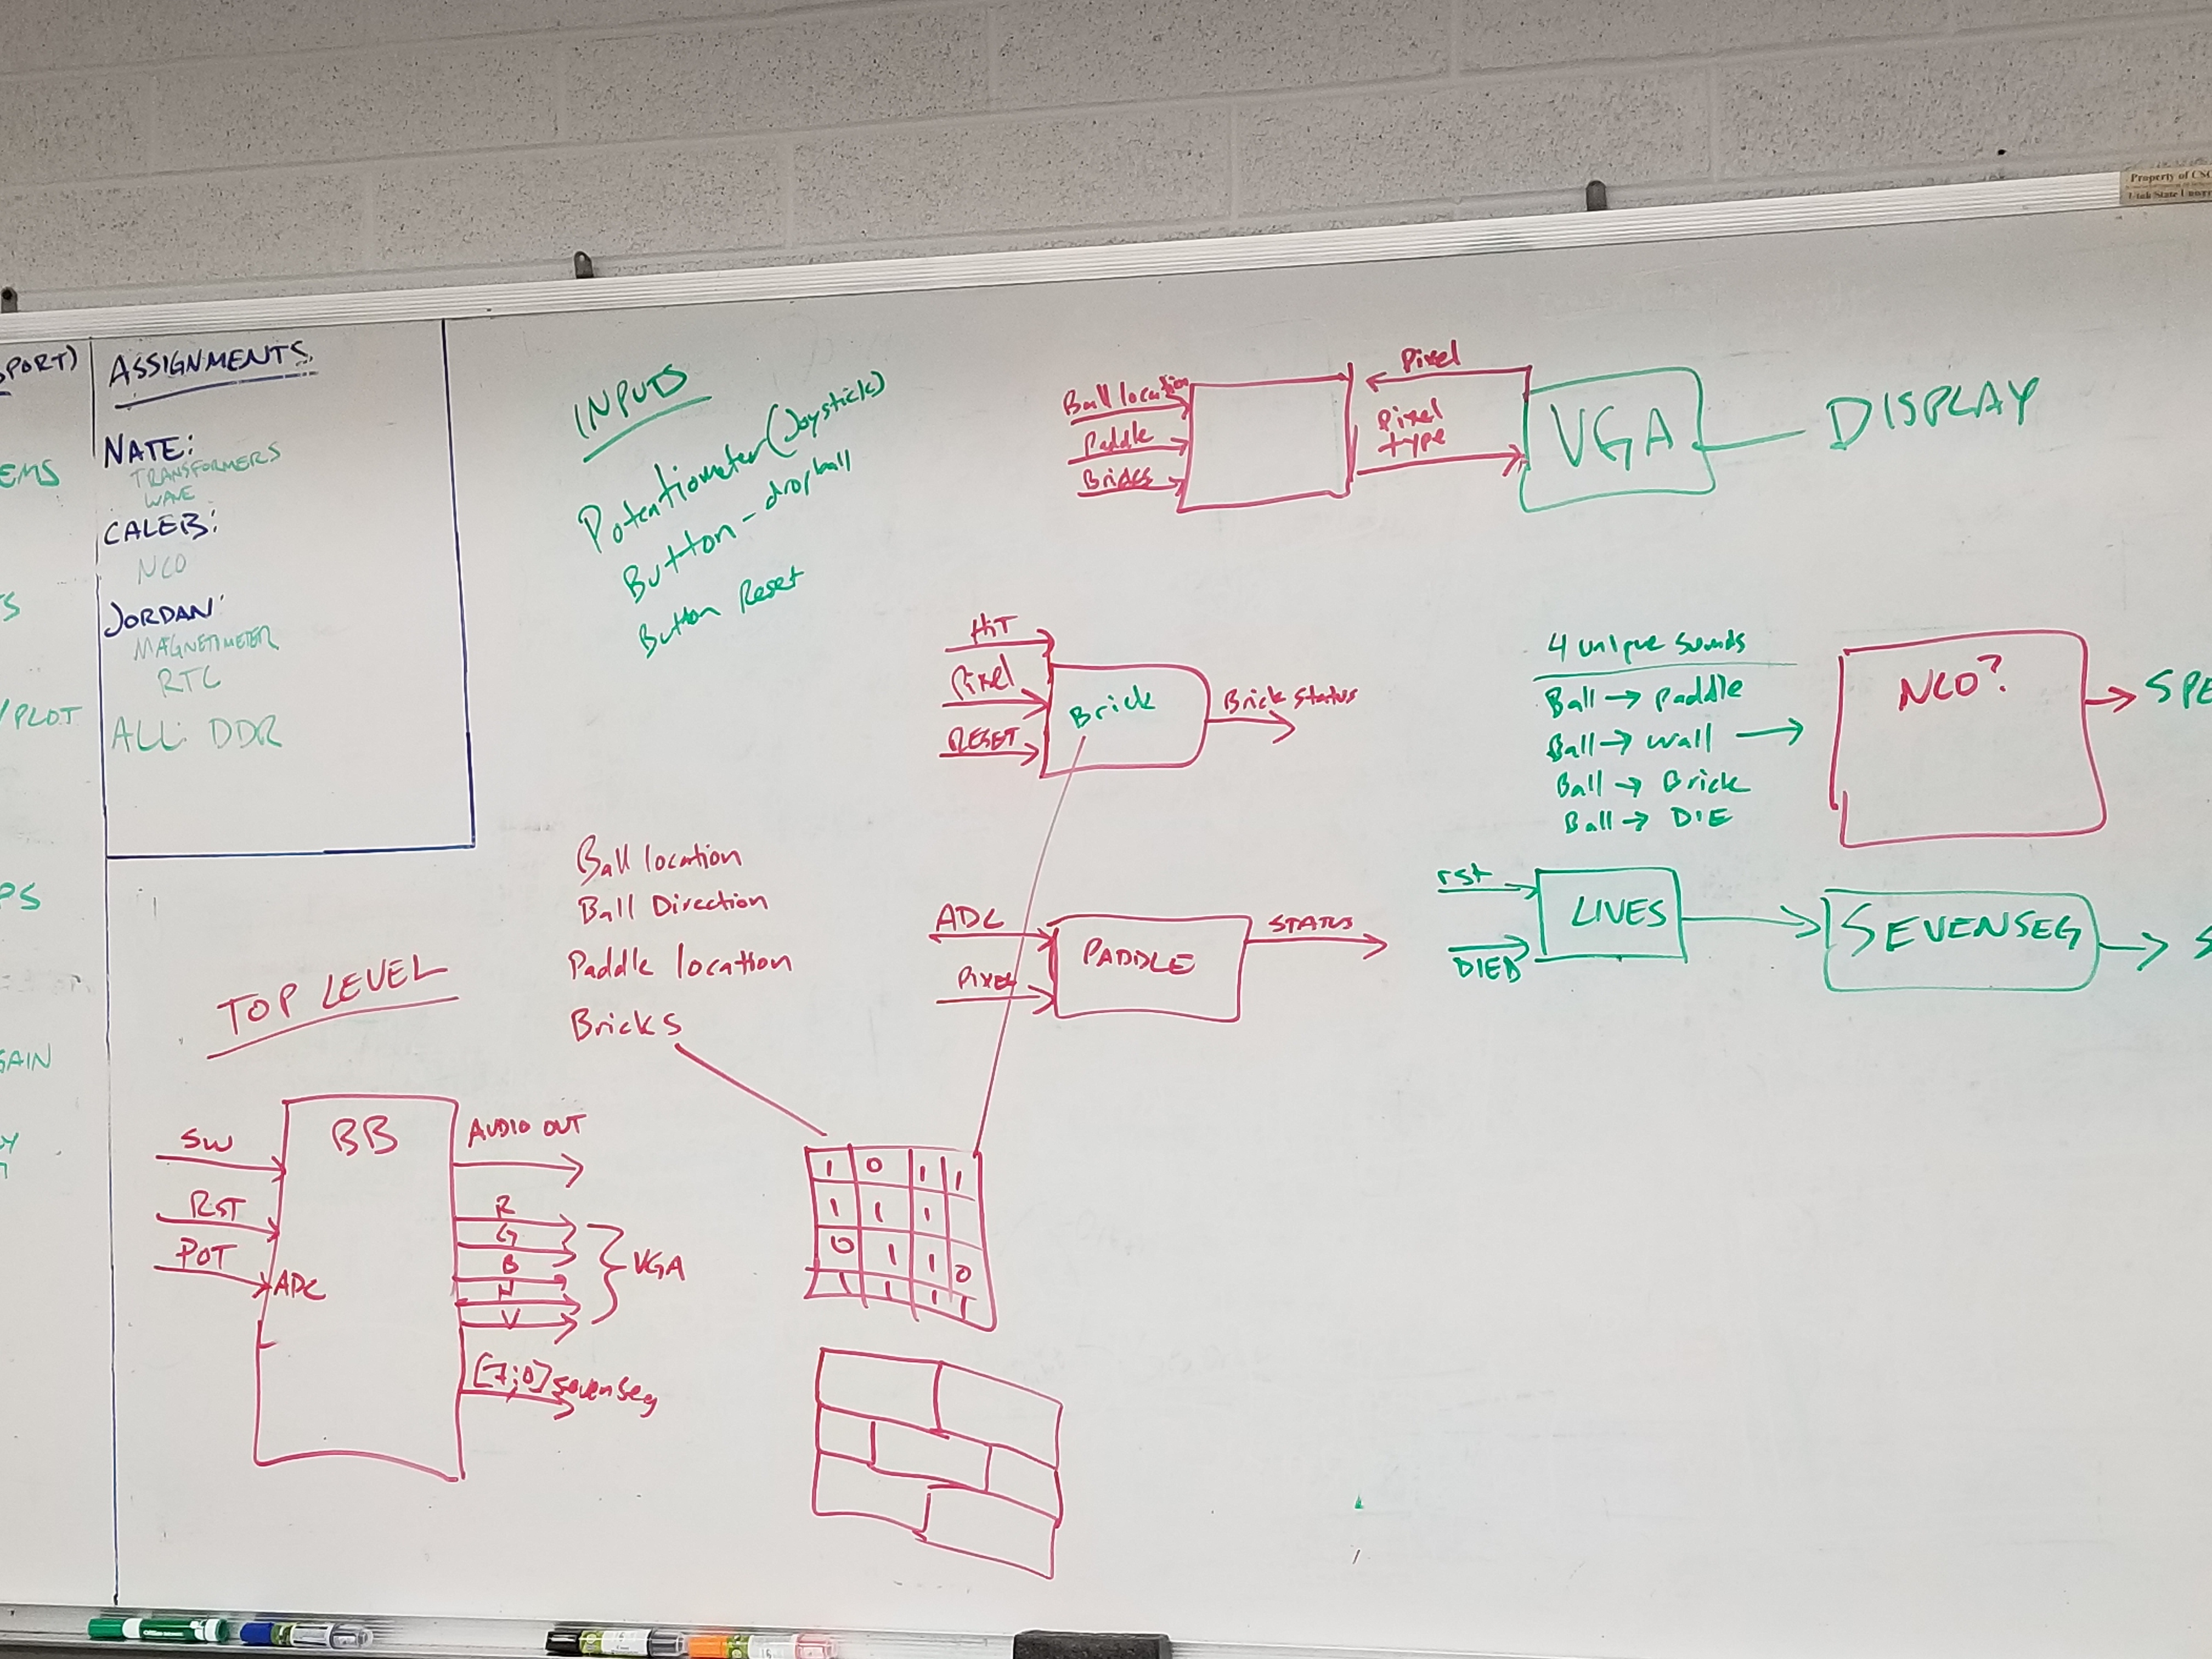 Property of CSC
Utah State Univer
PORT)
EMS
TS
/PLOT
PS
GAIN
ASSIGNMENTS
NATE:
TRANSFORMERS
WAVE
CALEB:
NCO
JORDAN:
MAGNETIMETER
RTC
ALL: DDR
INPUTS
Potentiometer (Joystick)
Button - drop ball
Button Reset
Ball location
Paddle
Bricks
Pixel
Pixel
type
VGA
DISPLAY
HIT
Pixel
RESET
Brick
Brick Status
4 unique sounds
Ball → paddle
Ball → wall
Ball → Brick
Ball → DIE
NCO?
SPE
Ball location
Ball Direction
Paddle location
Bricks
ADC
Pixel
PADDLE
STATUS
rst
DIED
LIVES
SEVENSEG
S
TOP LEVEL
SW
RST
POT
ADC
BB
AUDIO OUT
R
G
B
H
V
VGA
[7:0] sevenseg
1 0 1 1
1 1 1
0 1 1 0
1 1 1 1